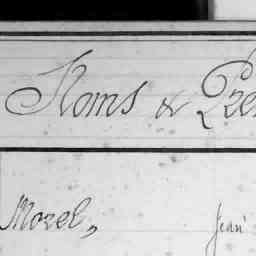 Noms & Pré
Morel, Jean